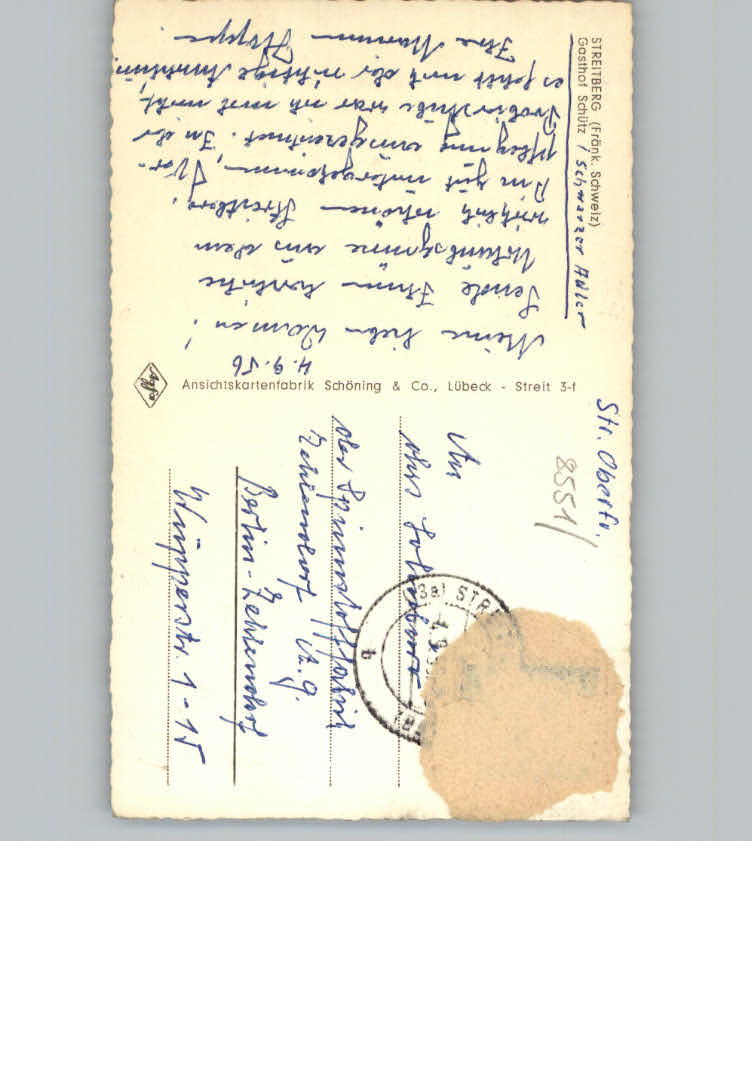 STREITBERG (Fränk. Schweiz)
Gasthof Schütz / Schwarzer Adler
4.9.56
Meine lieben Damen!
Sende Ihnen herzliche
Urlaubsgrüsse aus dem
wirklich schönen Streitberg.
Bin gut untergekommen, Ver-
pflegung ausgezeichnet. In der
Probierstube war ich noch nicht,
es fehlt noch die richtige
Ihre Hoppe.
Agfa
Ansichtskartenfabrik Schöning & Co., Lübeck - Streit 3-f
Str. Oberfr.
8551/
An
das Lohnbüro
der Spinnstofffabrik
Zehlendorf A.G.
Berlin-Zehlendorf
Wupperstr. 1-15
(13a) STRE
b